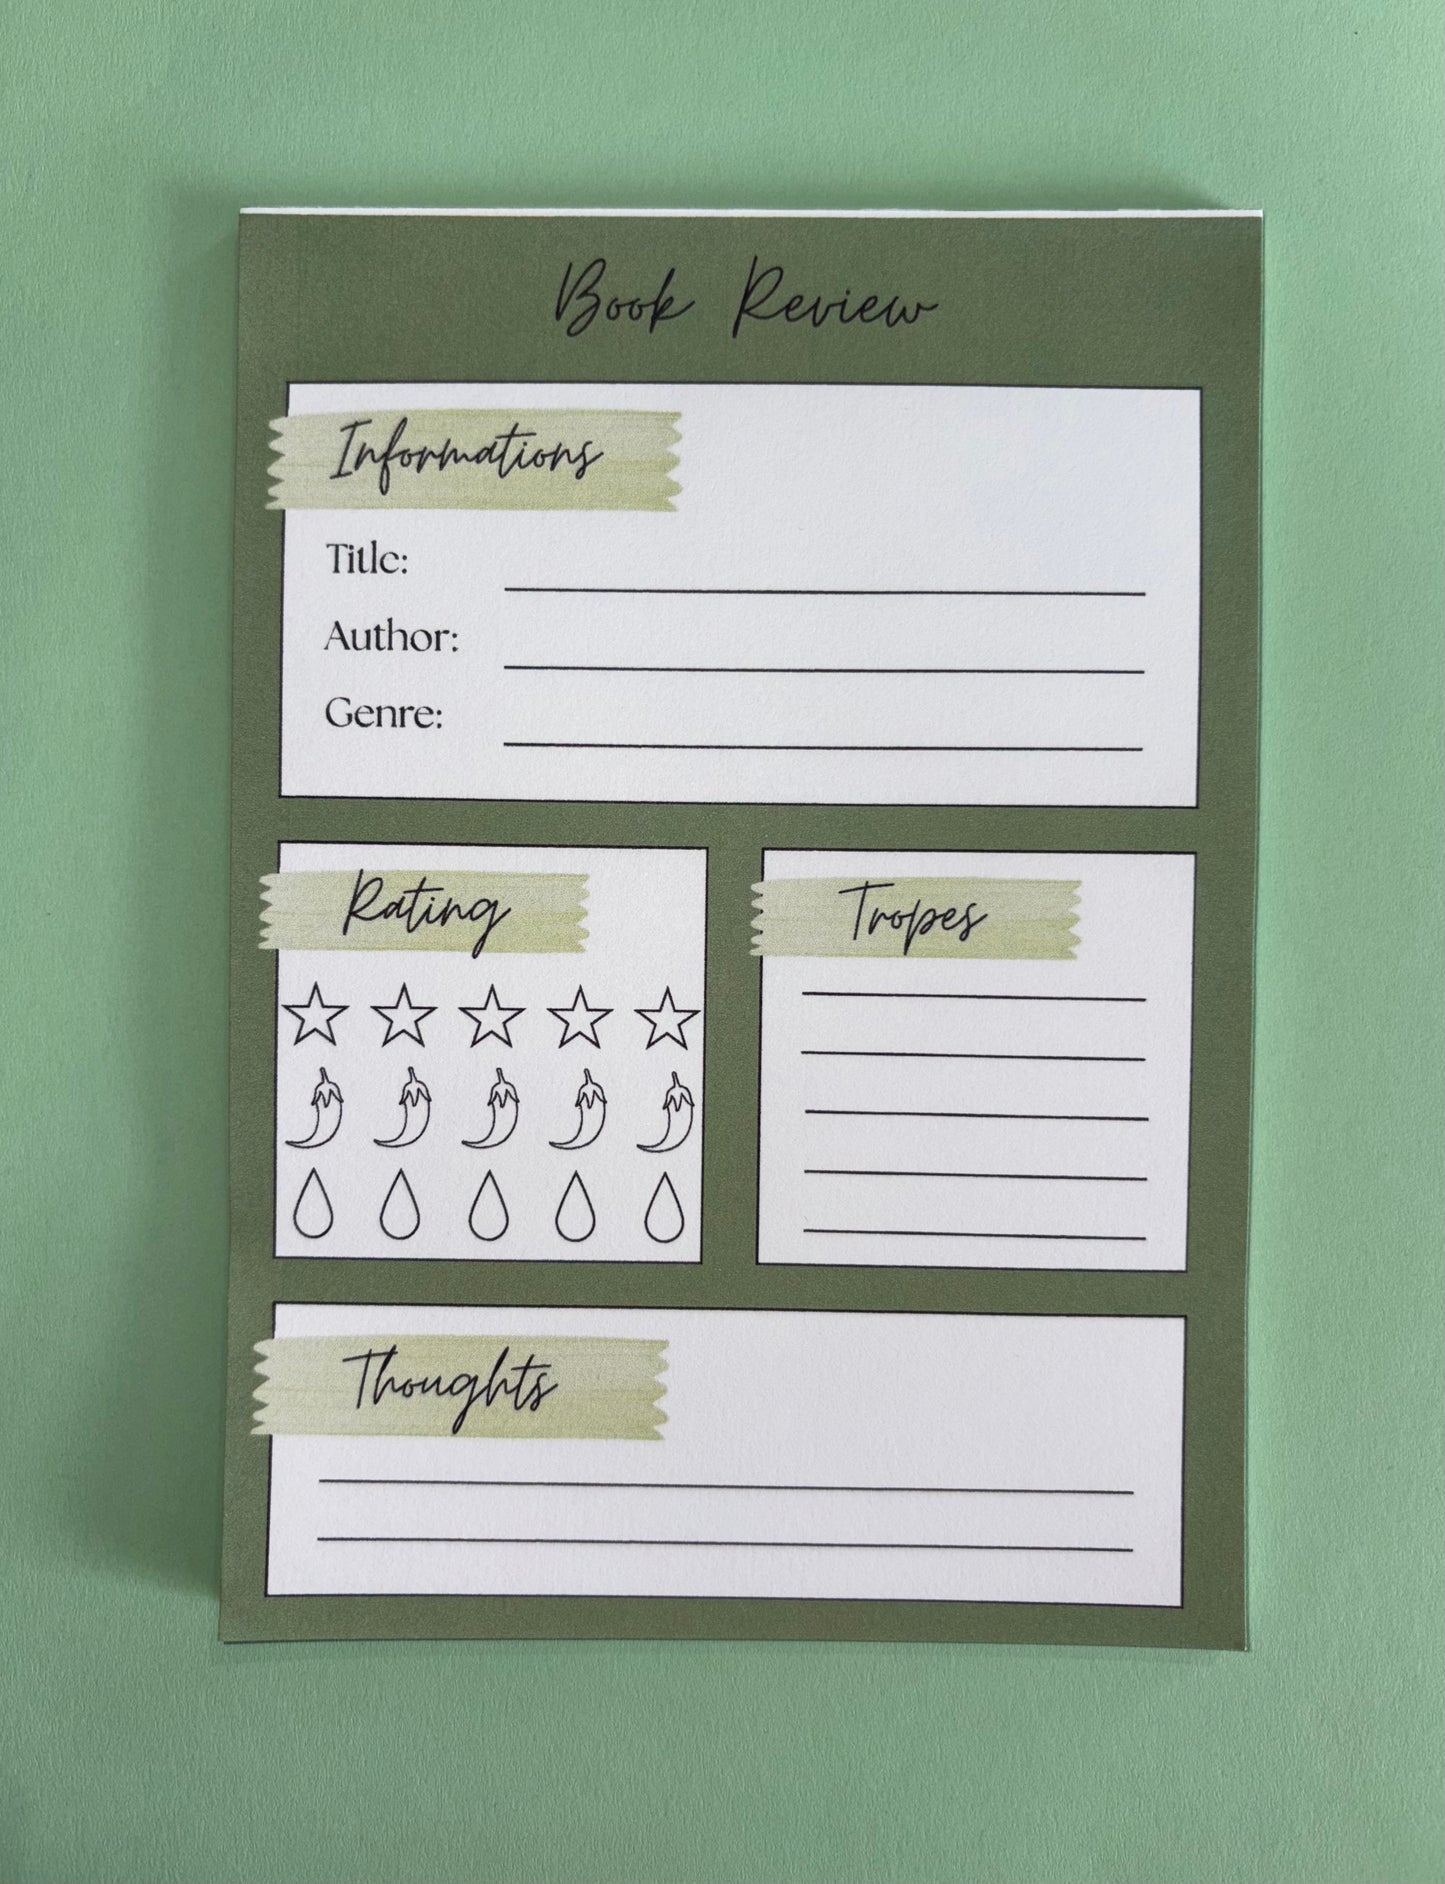 Book Review
Informations
Title:
Author:
Genre:
Rating
Tropes
Thoughts